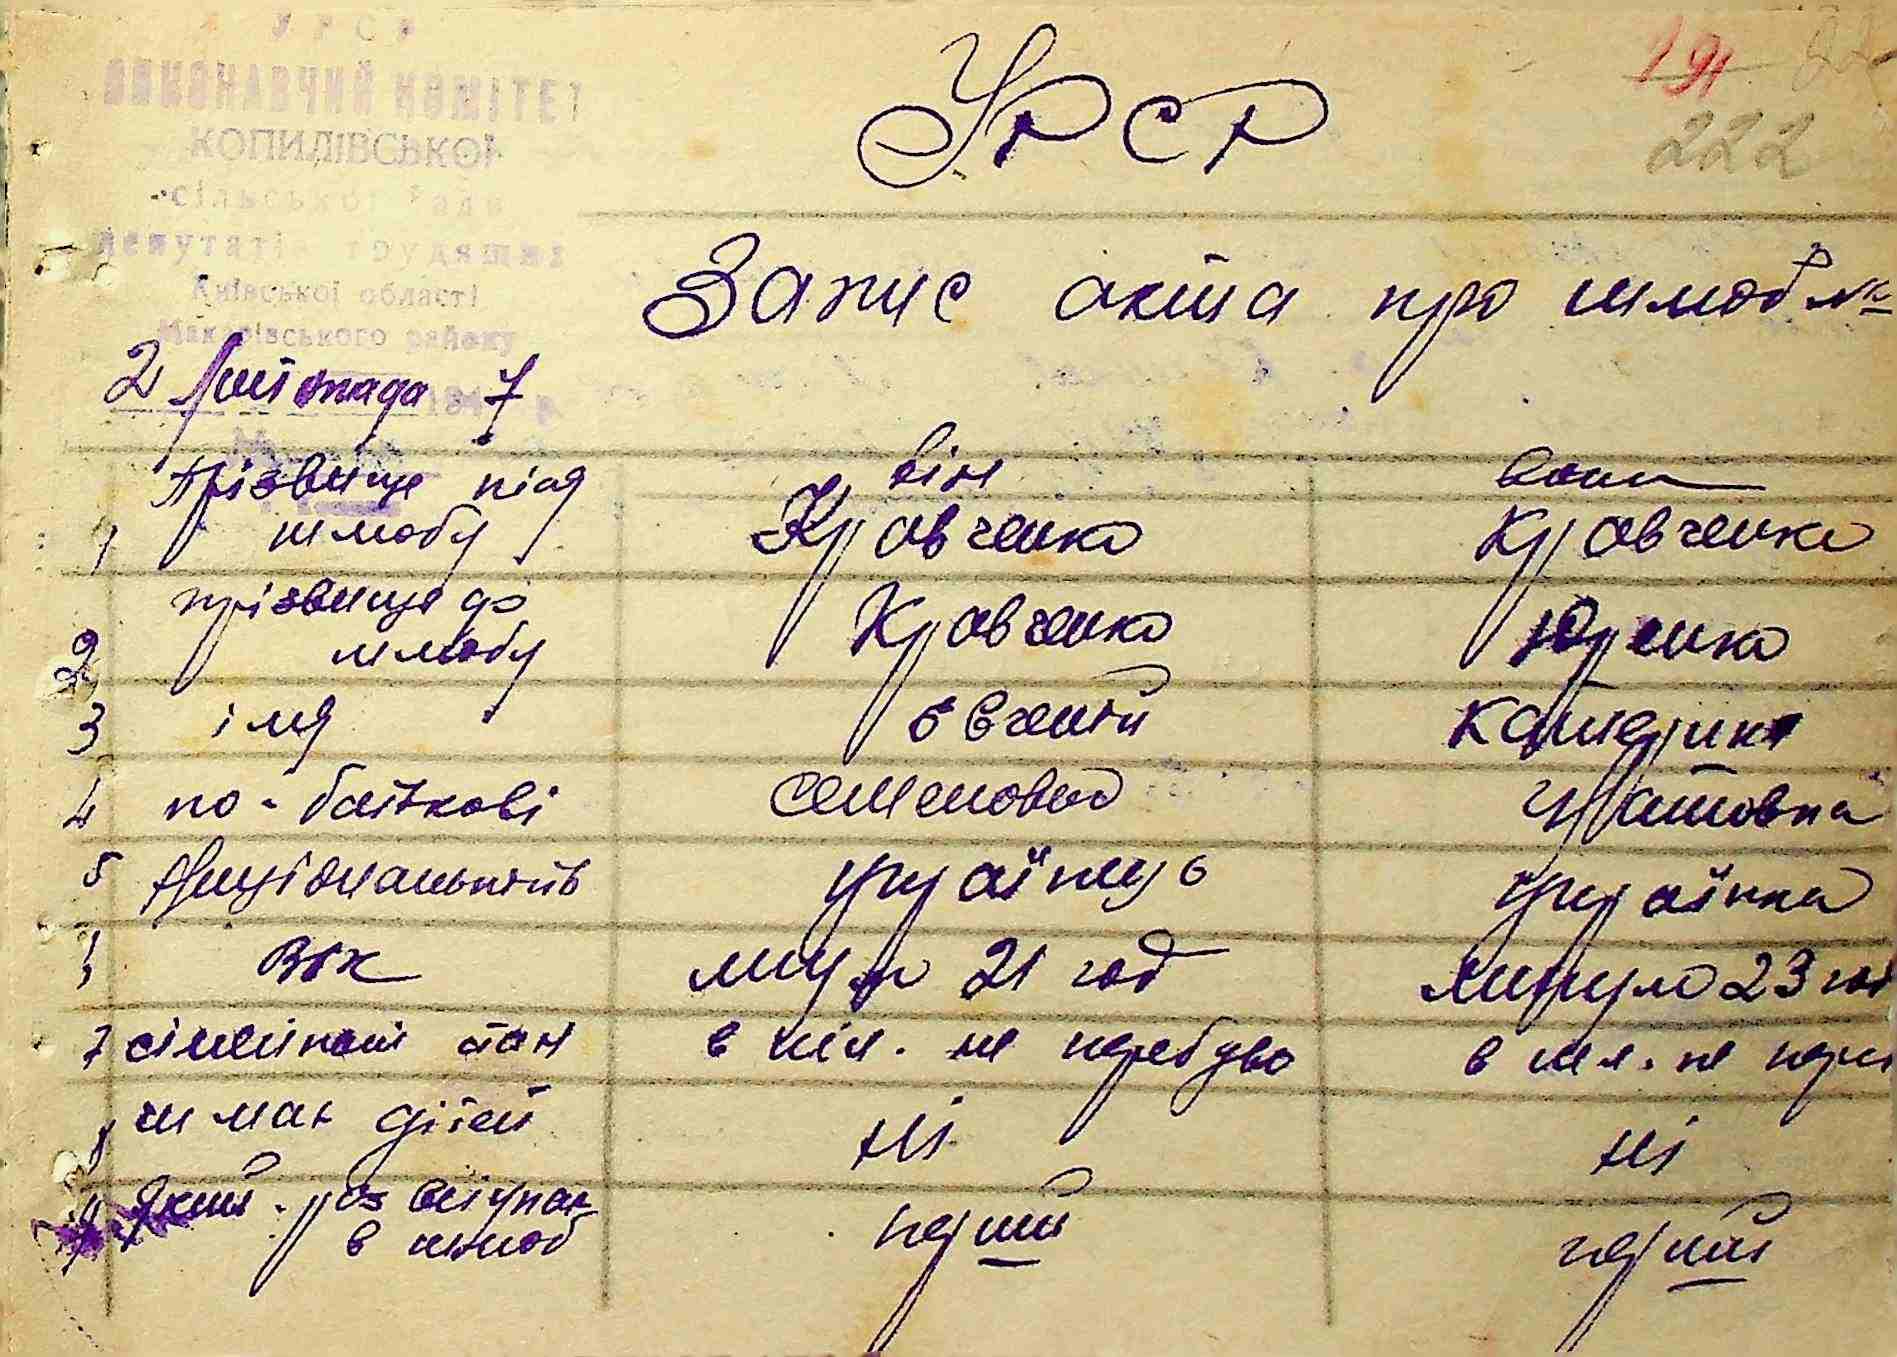 УРСР
ВИКОНАВЧИЙ КОМІТЕТ
КОПИЛІВСЬКОЇ
сільської Ради
депутатів трудящих
Київської області
Макарівського району
2 листопада 194 7 р
191
222
УРСР
Запис акта про шлюб №
він вона
1 Прізвище після шлюбу Кравченко Кравченко
2 прізвище до шлюбу Кравченко Юренко
3 імя Євгеній Катерина
4 по-батькові Семенович Гнатовна
5 Національність українець українка
Вік минуло 21 год минуло 23 год
7 сімейний стан в шл. не перебував в шл. не пере
8 чи має дітей ні ні
9 Який раз вступає в шлюб перший перший